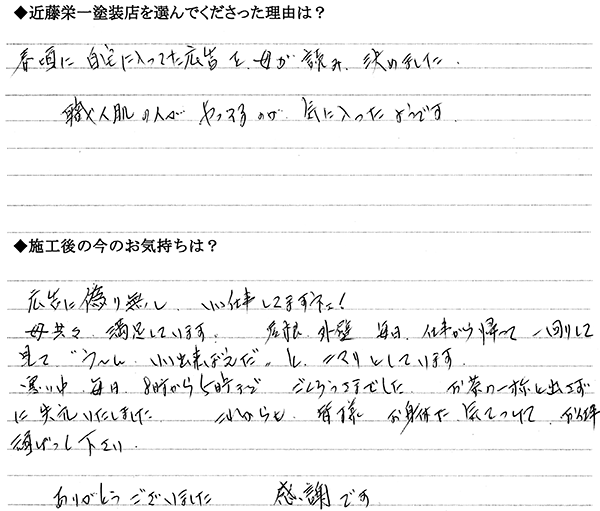 ◆近藤栄一塗装店を選んでくださった理由は？
春頃に 自宅に入ってた広告を、母が読み、決めました。
職人肌の人が やってるのが 気に入ったようです。
◆施工後の今のお気持ちは？
広告に偽り無し、いい仕事してますネェ！
母共々、満足しています。 屋根、外壁 毎日、仕事から帰って 一回りして
見て"う〜ん いい出来ばえだ"。と、ニマリとしています。
寒い中、毎日、8時から5時まで ごくろうさまでした。 お茶の一杯も出さず
に 失礼いたしました これからも、皆様 お身体に気をつけて、お仕事
頑ばって下さい
ありがとうございました 感謝です